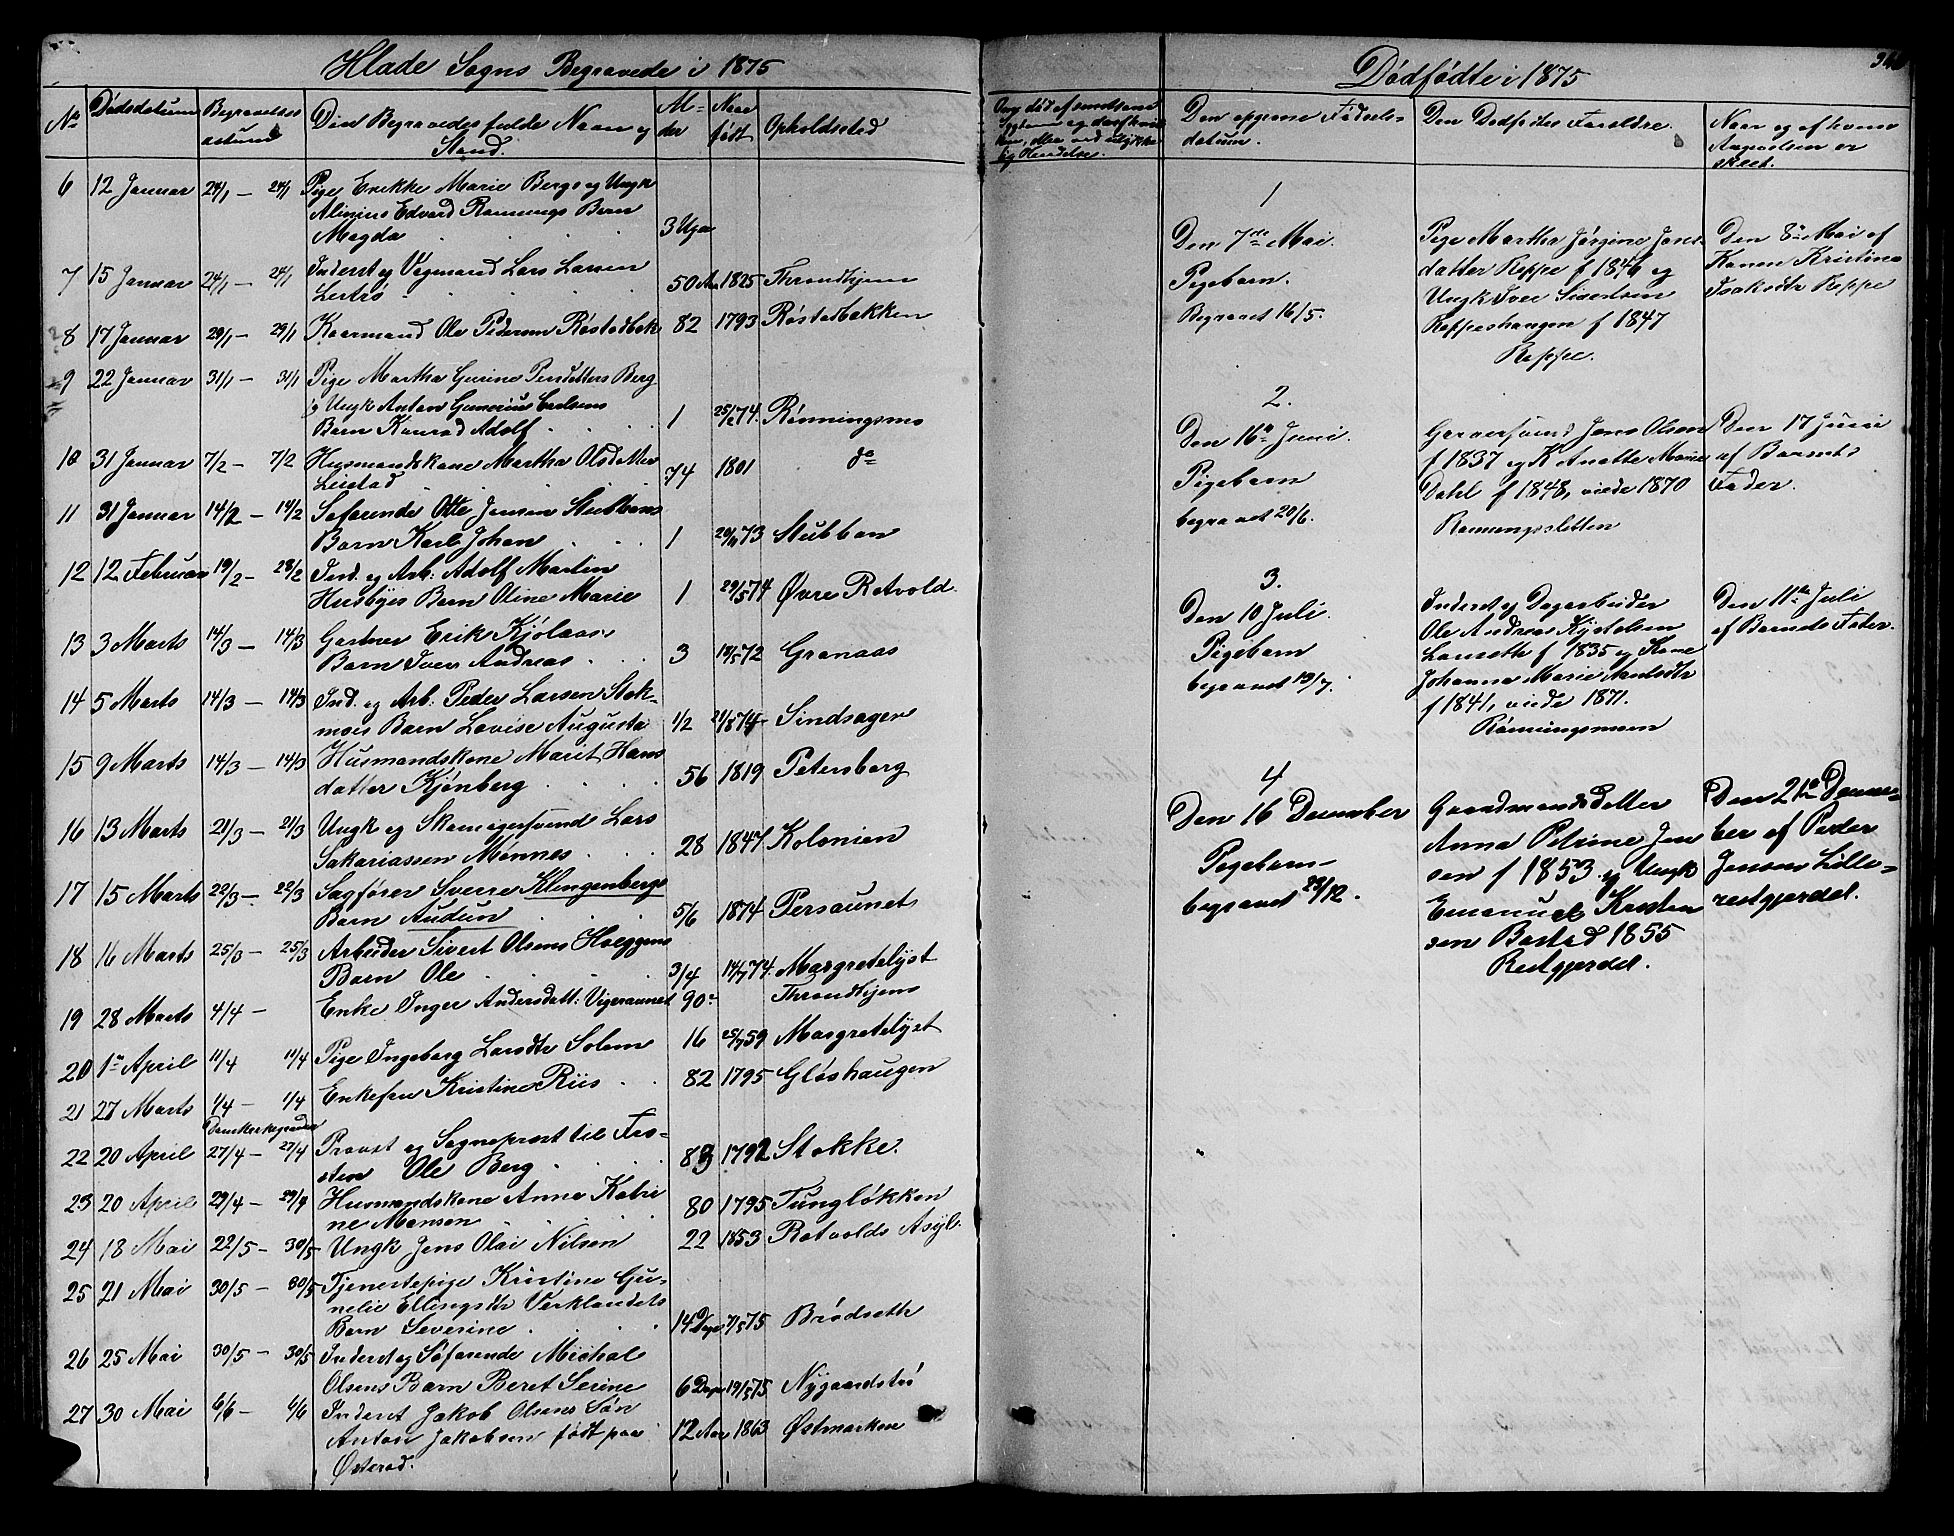 Hlade Sogns Begravede i 1875
No Dødsdatum Begravelses Den Begravedes fulde Navn og Stand. Al- der Naar født Opholdssted
6 12 Januar 24/1 — 24/1 Pige Enekke Marie Bergs og Ungk
Alinius Edvard Rønnings Barn
Magda 3 Uger
7 15 Januar 24/1 — 24/1 Inderst og Vognmand Lars Larsen 50 Aar 1825 Throndhjem
8 17 Januar 29/1 — 29/1 Kaarmand Ole Pedersen Røstadbak 82 1793 Røstadbakken
9 22 Januar 31/1 — 31/1 Pige Martha Gurine Persdatters Berg
og Ungk Anton Gunerius Carlsens
Barn Konrad Adolf 1 25/2 74. Rønningsmo
10 31 Januar 7/2 — 7/2 Husmandskone Martha Olsdatter
Leistad 74 1801 do
11 31 Januar 14/2 — 14/2 Søfarende Otto Jensen Stubbans
Barn Karl Johan 1 73 Stubban
12 12 Februar 19/2 — 28/2 Ind. og Arb. Adolf Martin
Husbyes Barn Oline Marie 1 29/5 74 Øvre Rotvold.
13 3 Marts 14/3 — 14/3 Gartner Erik Kjølaas
Barn Iver Andreas 3 18/5 72 Granaas
14 5 Marts 14/3 — 14/3 Ind. og Arb. Peder Larsen Stok-
moes Barn Lovise Augusta 1/2 21/8 74 Sindsagen
15 9 Marts 14/3 — 14/3 Husmandskone Marit Hans
datter Kjønberg 56 1819 Petersborg
16 13 Marts 21/3 — 21/3 Ungk og Skomagersvend Lars
Sakariassen Mønnes 28 1847 Kolonien
17 15 Marts 22/3 — 22/3 Sagfører Sverre Klingenbergs
Barn Audun 5/6 1874 Persaunet
18 16 Marts 25/3 — 25/3 Arbeider Sivert Olsens Hoeggens
Barn Ole 3/4 14/7 74 Margretelyst
19 28 Marts 4/4 — Enke Inger Andersdatt: Vigeraunet 90 Throndhjem
20 1ste April 11/4 11/4 Pige Ingeborg Larsdtr Solem 16 25/7 59 Margretelyst
21 27 Marts 1/4 — 1/4 Enkefru Kristine Riis 82 1795 Gløshaugen
22 20 April 27/4 — 27/4 Provst og Sogneprest til Fro-
sten Ole Berg 83 1792 Stokke.
23 20 April 29/4 — 29/4 Husmandskone Anne Katri
ne Monsen 80 1795 Tungløkken
24 18 Mai 22/5 — 30/5 Ungk Jens Olai Nilsen 22 1853 Rotvolds Asyl.
25 21 Mai 30/5 — 30/5 Tjenestepige Kristine Gu-
nelie Ellingsdtr Verklandets
Barn Severine 14 Dage 7/5 75 Brødseth
26 25 Mai 30/5 — 30/5 Inderst og Søfarende Michal
Olsens Barn Beret Serine 6 Dage 19/5 75 Nygaardstrø
27 30 Mai 6/6 — 6/6 Inderst Jakob Olsens Søn
Anton Jakobsen født paa 12 Aar 1863 Østmarken
Østerød.
Dødfødte i 1875
Den opgivne Fødsels-
datum.
Den Dødfødtes Forældre.
Naar og af hvem
Anmeldelsen er
skeet.
1
Den 7de Mai.
Pigebarn.
Begravet 16/5.
Pige Martha Jørgine Jens-
datter Reppe f 1846 og
Ungk Iver Sivertsen
Reppeshaugen f 1847
Reppe.
Den 8de Mai af
Konen Kristina
Isaksdtr Reppe
2.
Den 16de Juni.
Pigebarn
begravet 20/6.
Garversvend Jens Olsen
f 1837 og K Anette Marie
Dahl f 1848, viede 1870
Rønningssletten
Den 17 Juni
af Barnets
Fader.
3.
Den 10 Juli.
Pigebarn
begravet 19/7.
Inderst og Dagarbeider
Ole Andreas Kystelsen
f 1835 og Kone
Johanna Marie Arntsdtr
f 1841, viede 1871.
Rønningsmoen
Den 11te Juli
af Barnets Fader.
4
Den 16 December
Pigebarn
begravet 29/12.
Gaardmandsdatter
Anna Petrine Jen
sen f 1853 og Ungk
Emanuel Kristen
sen Bostad 1855
Restgjerdet.
Den 21de Decem-
ber af Peder
Jensen Lille-
restgjerdet.